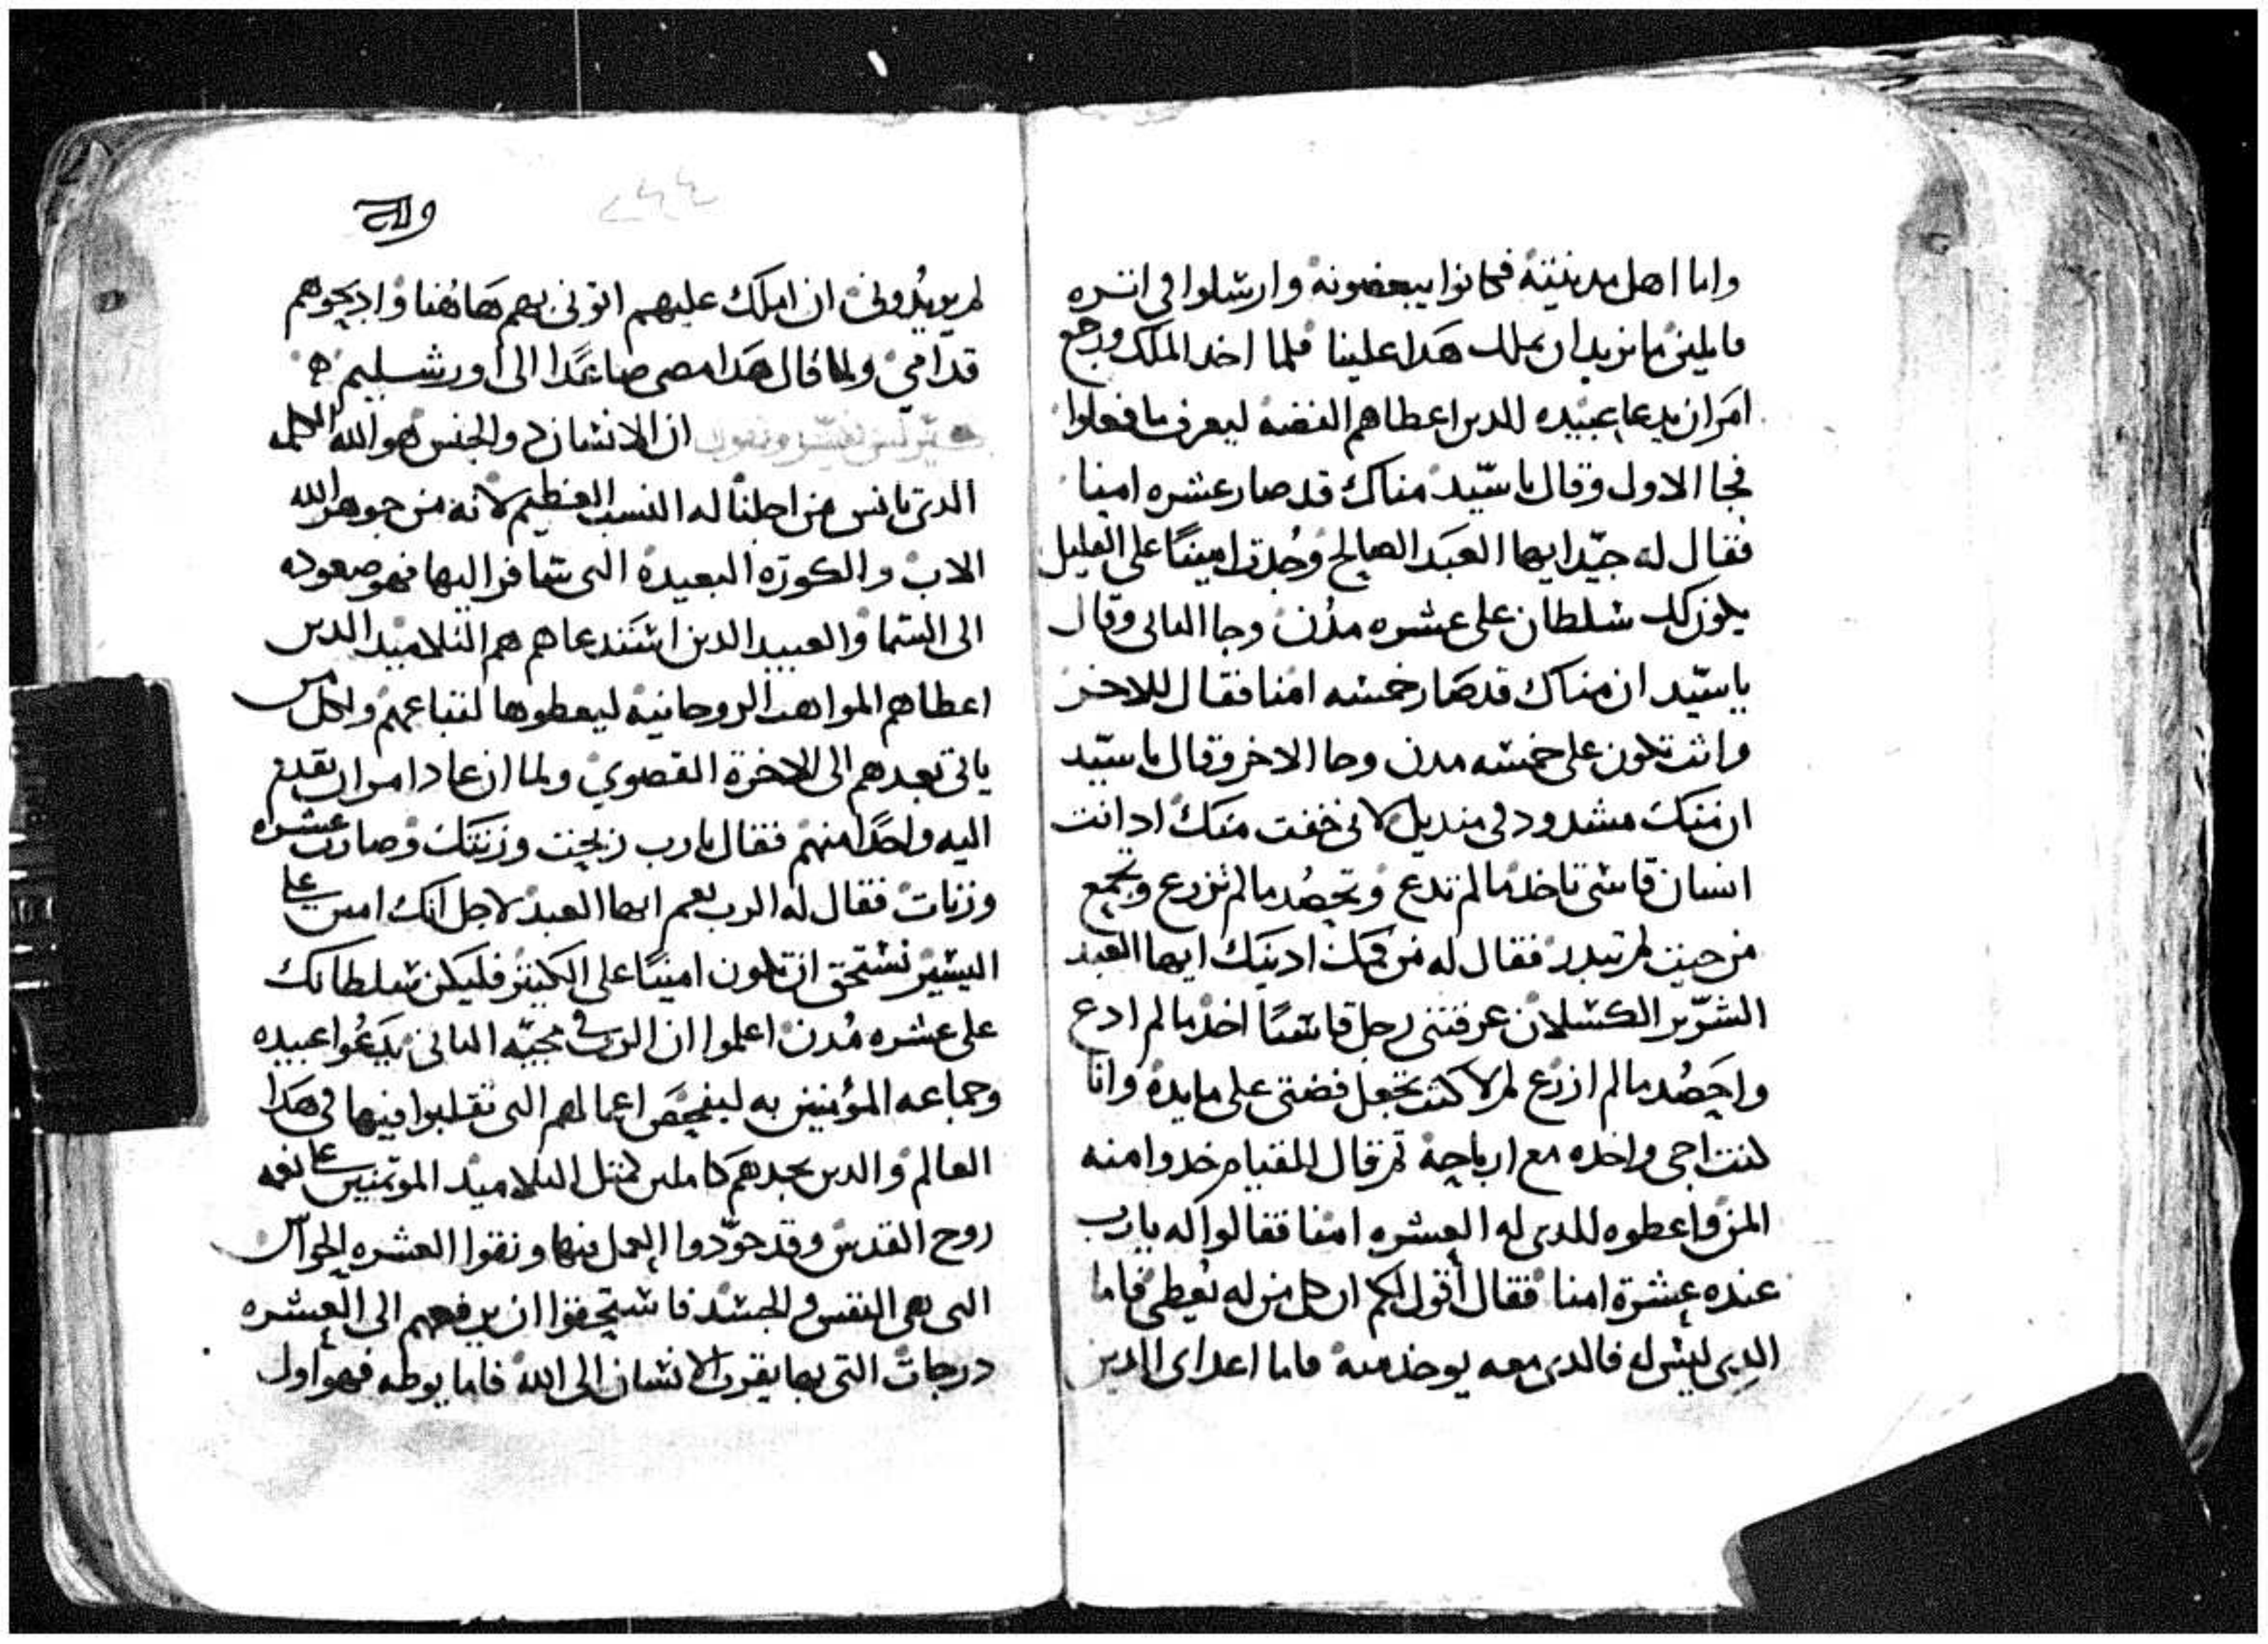 واما اهل مدينته فكانوا يبغضونه وارسلوا في اتره
قايلين ما نريد ان يملك هدا علينا فلما اخد الملك ورجع
امر ان يدعا عبيده الدين اعطاهم الفضه ليعرف ما فعلوا
فجا الاول وقال يا سيد مناك قد صار عشره امنا
فقال له جيدا ايها العبد الصالح وجدت امينا على القليل
يكون لك سلطان على عشره مدن وجا التانى وقال
يا سيد ان مناك قد صار خمسه امنا فقال للاخر
وانت تكون على خمسه مدن وجا الاخر وقال يا سيد
ان مناك مشدود في منديل لاني خفت منك اد انت
انسان قاسى تاخد ما لم تدع وتحصد ما لم تزرع وتجمع
من حيت لم تبدر فقال له من فمك ادينك ايها العبد
الشرير الكسلان عرفتني رجل قاسيا اخد ما لم ادع
واحصد ما لم ازرع لم لا كنت تجعل فضتى على مايدة وانا
كنت اجى واخده مع ارباحه تم قال للقيام خدوا منه
المن واعطوه للدى له العشره امنا فقالوا له يا رب
عنده عشرة امنا فقال أقول لكم ان كل من له يعطى فاما
الدى ليس له فالدى معه يوخد منه فاما اعداى الدين
٢٤٤
لم يريدونى ان املك عليهم اتونى بهم هاهنا وادبحوهم
قدامي ولما قال هدا مضى صاعدا الى اورشليم
ان الانسان دو الجنس هو الله الكلمه
الدى تانس من اجلنا له النسب العظيم لانه من جوهر الله
الاب والكوره البعيدة التى سافر اليها فهو صعوده
الى السما والعبيد الدين استدعاهم هم التلاميد الدين
اعطاهم المواهب الروحانية ليعطوها لتباعهم ولكل من
ياتى بعدهم الى الاخرة القصوي ولما ان عاد امر ان يقدم
اليه واحدا منهم فقال يا رب ربحت وزنتك وصارت عشره
وزنات فقال له الرب نعم ايها العبد لاجل انك امين على
اليسير تستحق ان تكون امينا على الكتير فليكن سلطانك
على عشره مدن اعلموا ان الرب في مجيه التانى يدعوا عبيده
وجماعه المؤمنين به ليفحص اعمالهم التى تقلبوا فيها في هدا
العالم والدين يجدهم كاملين كمتل التلاميد الموتمنين على نعمه
روح القدس وقد جودوا العمل فيها ونقوا العشره الحواس
التى هى النفس والجسد فاستحقوا ان يرفعهم الى العشره
درجات التى بها يقرب الانسان الى الله فاما يوطه فهو اول